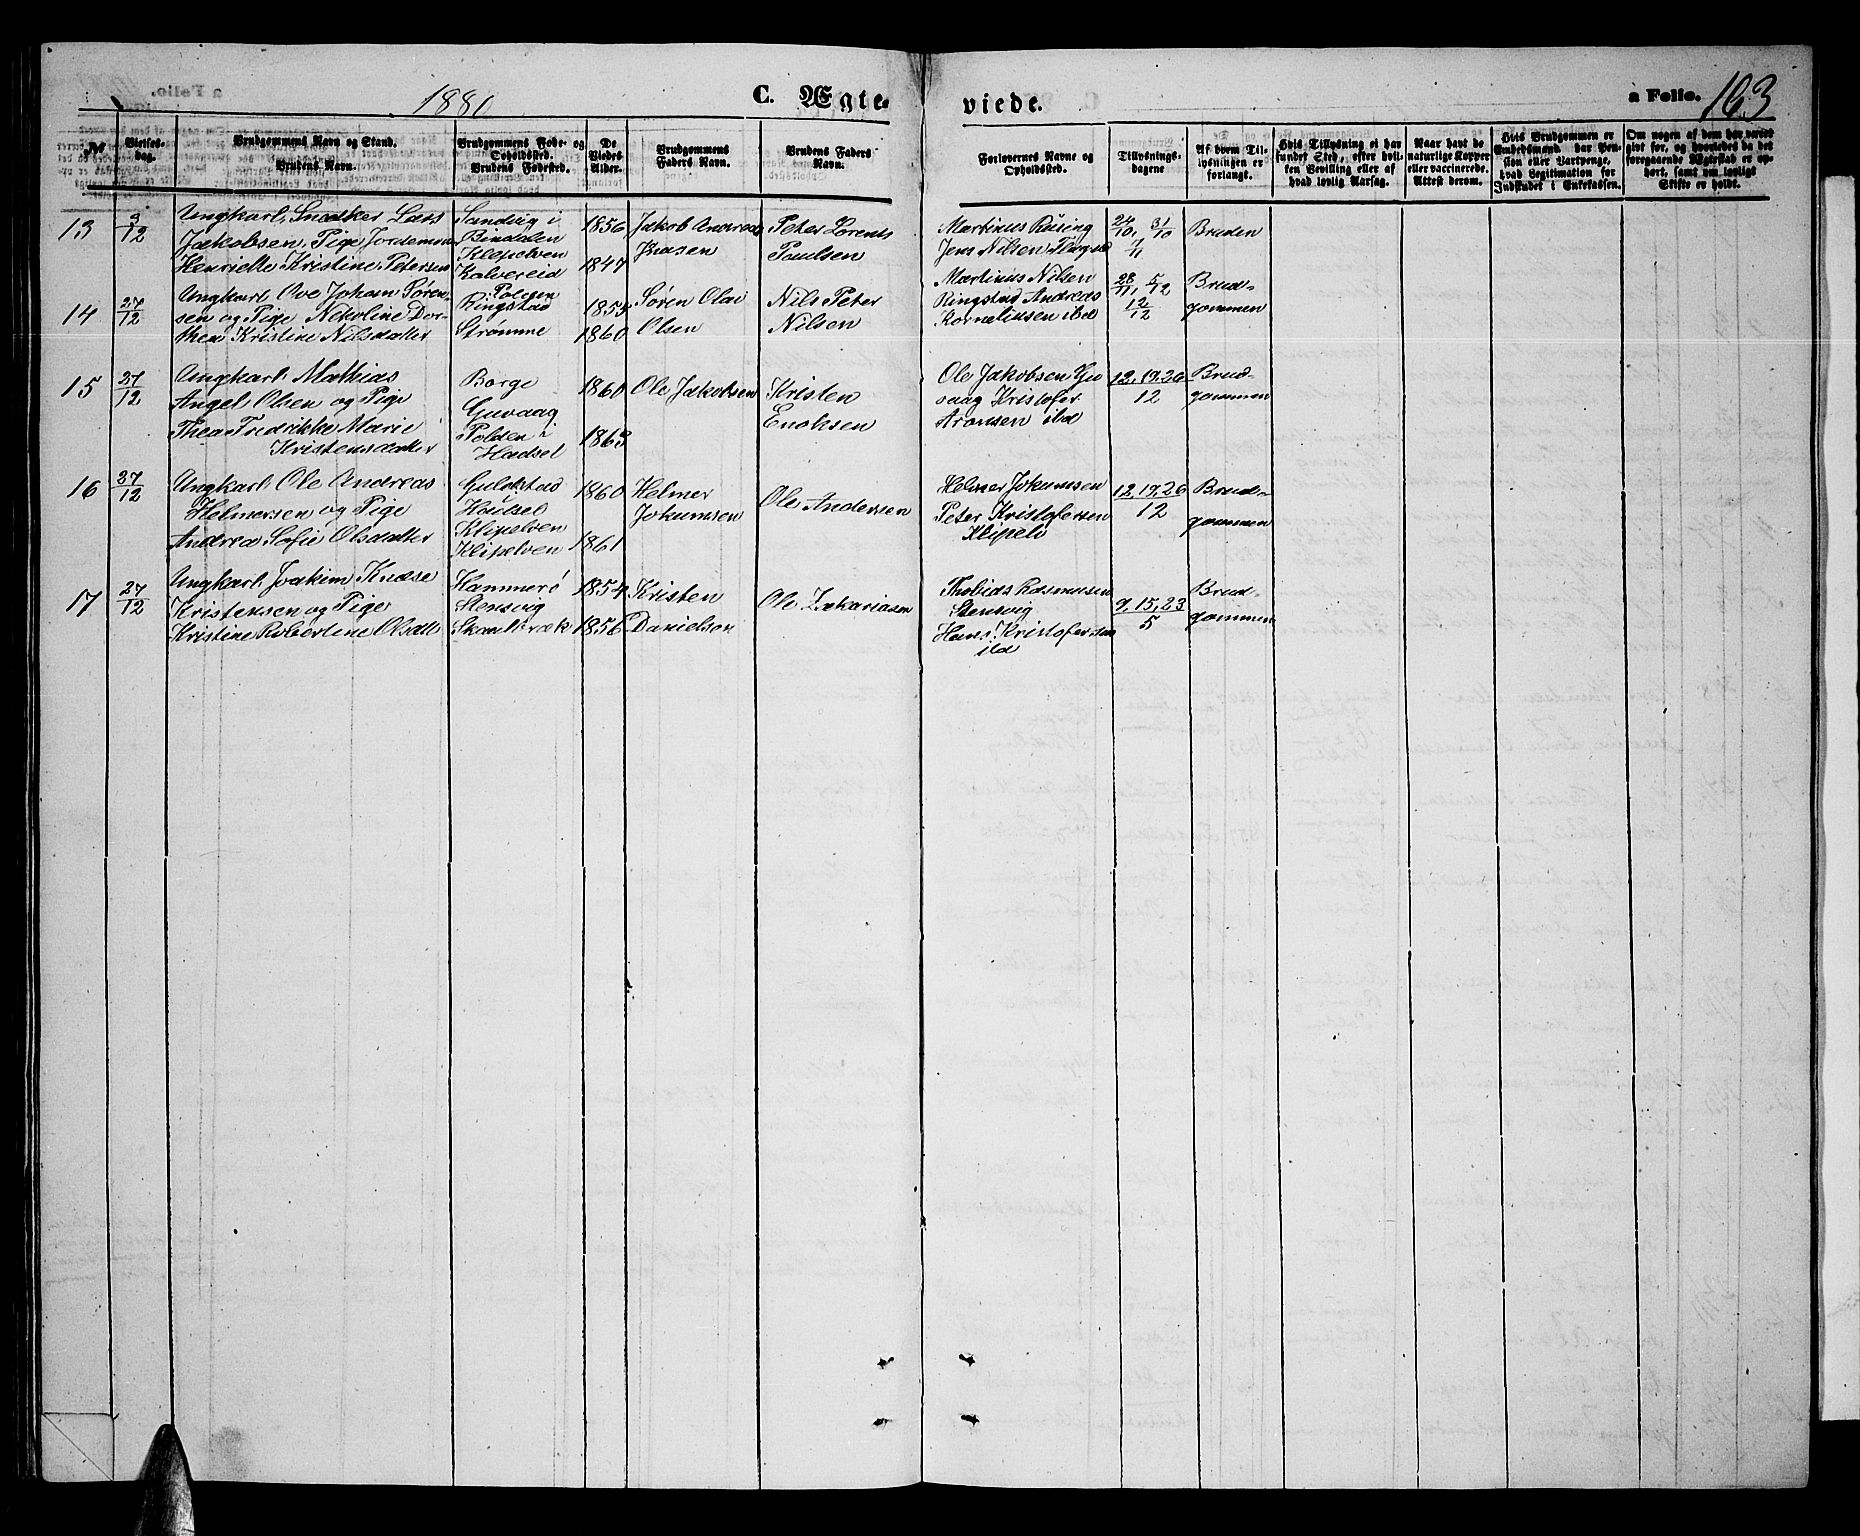 1880
C. Ægte-
viede.
a Folio. 163
№
Vielses-
dag.
Brudgommens Navn og Stand.
Brudens Navn.
Brudgommens Føde- og
Opholdssted.
Brudens Fødested.
De
Viedes
Alder.
Brudgommens
Faders Navn.
Brudens Faders
Navn.
Forlovernes Navne og
Opholdssted.
Tillysnings-
dagene
Af hvem Til-
lysningen er
forlangt.
Hvis Tillysning ei har
fundet Sted, efter hvil-
ken Bevilling eller af
hvad lovlig Aarsag.
Naar havt de
naturlige Kopper
eller vaccinerede.
Attest derom.
Hvis Brudgommen er
Embedsmand, har Pen-
sion eller Vartpenge,
hvad Legitimation for
Indskudet i Enkekassen.
Om nogen af dem har været
gift før, og hvorledes da det
foregaaende Ægteskab er op-
hørt, samt om lovligt
Skifte er holdt.
13 3/12
Ungkarl, Snedker Lars
Jakobsen, Pige, Jordemor
Henriette Kristine Petersen
Sandvig i
Bindalen
Klepelven
Kolvereid
1856
1847
Jakob Andreas
Jnasen
Peter Lorents
Paulsen
Martinus Rüsing
Jens Nilsen
24/10, 31/10
7/11
Bruden
14 27/12
Ungkarl Ove Johan Søren-
sen og Pige Nikoline Dor-
thea Kristine Nilsdatter
Polden
Ringstad
Strømme
1855
1860
Søren Olai
Olsen
Nils Peter
Nilsen
Martinus Nilsen
Ringstad Andreas
Kornelinsen ibd
28/11, 5/12
12/12
Brud-
gommen
15 27/12
Ungkarl Mathias
Angel Olsen og Pige
Thea Fredrikke Marie
Kristensdatter
Borge
Guvaag
Polden i
Hadsel
1860
1863
Ole Jakobsen
Kristen
Enoksen
Ole Jakobsen Gu
vaag Kristofer
Aronsen ibd
12, 19, 26
12
Brud-
gommen
16 27/12
Ungkarl Ole Andreas
Helmersen og Pige
Andrea Sofie Olsdatter
Guldstad
Hadsel
Klipelven
Klipelven
1860
1861
Helmer
Jokumsen
Ole Andersen
Helmer Jokumsen
Peter Kristofersen
Klipelv
12, 19, 26
12
Brud-
gommen
17 27/12
Ungkarl Joakim Knase
Kristensen og Pige
Kristine Robertine Olsdatt
Hammerø
Stensvig
Skamбræk
1854
1856
Kristen
Danielsen
Ole Zakariasen
Thobias Rasmusen
Stensvig
Hans Kristofersen
ibd
9, 15, 23
5
Brud-
gommen